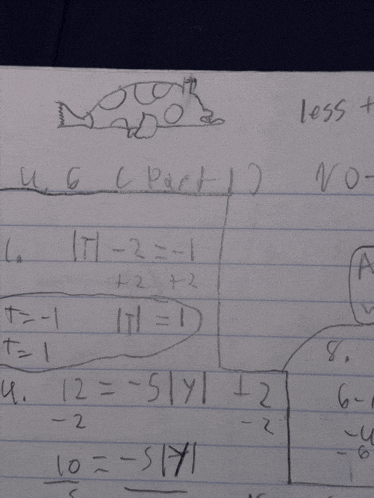 less +
4.6 (Part 1) NO-
1. |T| - 2 = -1
+2 +2
T = -1 |T| = 1
T = 1
8.
4. 12 = -5|Y| + 2
-2 -2
6-
10 = -5|Y|